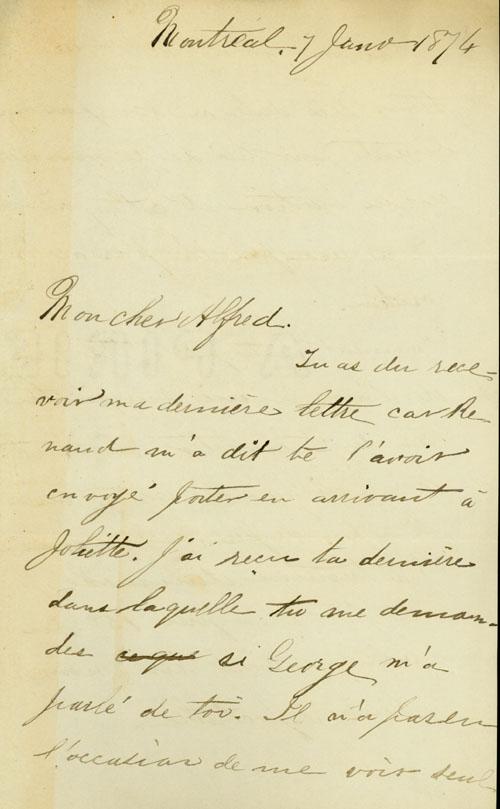 Montréal. 7 Janv 1874
Mon cher Alfred.
Tu as du rece-
voir ma dernière lettre car Re
naud m'a dit te l'avoir
envoyé porter en arrivant à
Joliette. J'ai recu ta dernière
dans laquelle tu me deman-
des ce que si George m'a
parlé de toi. Il n'a pas eu
l'occasion de me voir seul